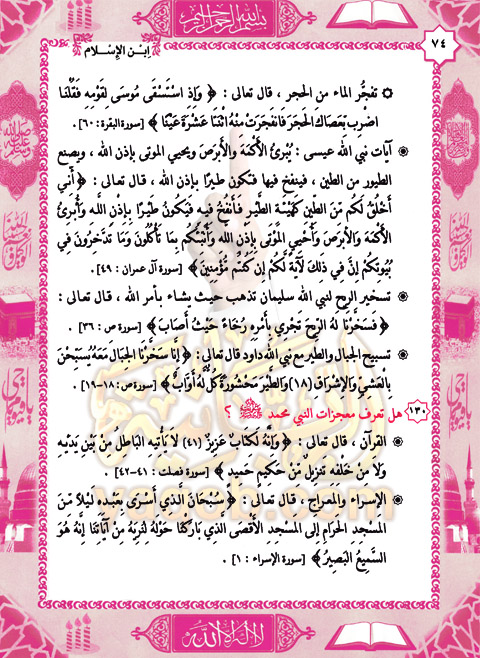 بسم الله الرحمن الرحيم
ابن الإسلام
٧٤
تفجُّر الماء من الحجر ، قال تعالى : ﴿ وَإِذِ اسْتَسْقَى مُوسَى لِقَوْمِهِ فَقُلْنَا
اضْرِب بِّعَصَاكَ الْحَجَرَ فَانفَجَرَتْ مِنْهُ اثْنَتَا عَشْرَةَ عَيْنًا ﴾ [سورة البقرة: ٦٠] .
آيات نبي الله عيسى : يُبْرِئُ الأَكْمَهَ والأَبْرَصَ ويحيي الموتى بإذن الله ، ويصنع
الطيور من الطين ، فينفخ فيها فتكون طيرًا بإذن الله ، قال تعالى : ﴿ أَنِّي
أَخْلُقُ لَكُم مِّنَ الطِّينِ كَهَيْئَةِ الطَّيْرِ فَأَنفُخُ فِيهِ فَيَكُونُ طَيْرًا بِإِذْنِ اللَّهِ وَأُبْرِئُ
الأَكْمَهَ وَالأَبْرَصَ وَأُحْيِي الْمَوْتَى بِإِذْنِ اللَّهِ وَأُنَبِّئُكُم بِمَا تَأْكُلُونَ وَمَا تَدَّخِرُونَ فِي
بُيُوتِكُمْ إِنَّ فِي ذَلِكَ لَآيَةً لَّكُمْ إِن كُنتُم مُّؤْمِنِينَ ﴾ [سورة آل عمران : ٤٩] .
تسخير الريح لنبي الله سليمان تذهب حيث يشاء بأمر الله ، قال تعالى :
﴿ فَسَخَّرْنَا لَهُ الرِّيحَ تَجْرِي بِأَمْرِهِ رُخَاءً حَيْثُ أَصَابَ ﴾ [سورة ص : ٣٦] .
تسبيح الجبال والطير مع نبي الله داود قال تعالى : ﴿ إِنَّا سَخَّرْنَا الْجِبَالَ مَعَهُ يُسَبِّحْنَ
بِالْعَشِيِّ وَالإِشْرَاقِ (١٨) وَالطَّيْرَ مَحْشُورَةً كُلٌّ لَّهُ أَوَّابٌ ﴾ [سورة ص: ١٨-١٩] .
١٣٠ هل تعرف معجزات النبي محمد ﷺ ؟
القرآن ، قال تعالى : ﴿ وَإِنَّهُ لَكِتَابٌ عَزِيزٌ (٤١) لا يَأْتِيهِ الْبَاطِلُ مِنْ بَيْنِ يَدَيْهِ
وَلا مِنْ خَلْفِهِ تَنزِيلٌ مِّنْ حَكِيمٍ حَمِيدٍ ﴾ [سورة فصلت : ٤١-٤٢] .
الإسراء والمعراج ، قال تعالى : ﴿ سُبْحَانَ الَّذِي أَسْرَى بِعَبْدِهِ لَيْلاً مِّنَ
الْمَسْجِدِ الْحَرَامِ إِلَى الْمَسْجِدِ الأَقْصَى الَّذِي بَارَكْنَا حَوْلَهُ لِنُرِيَهُ مِنْ آيَاتِنَا إِنَّهُ هُوَ
السَّمِيعُ الْبَصِيرُ ﴾ [سورة الإسراء : ١] .
لا إله إلا الله